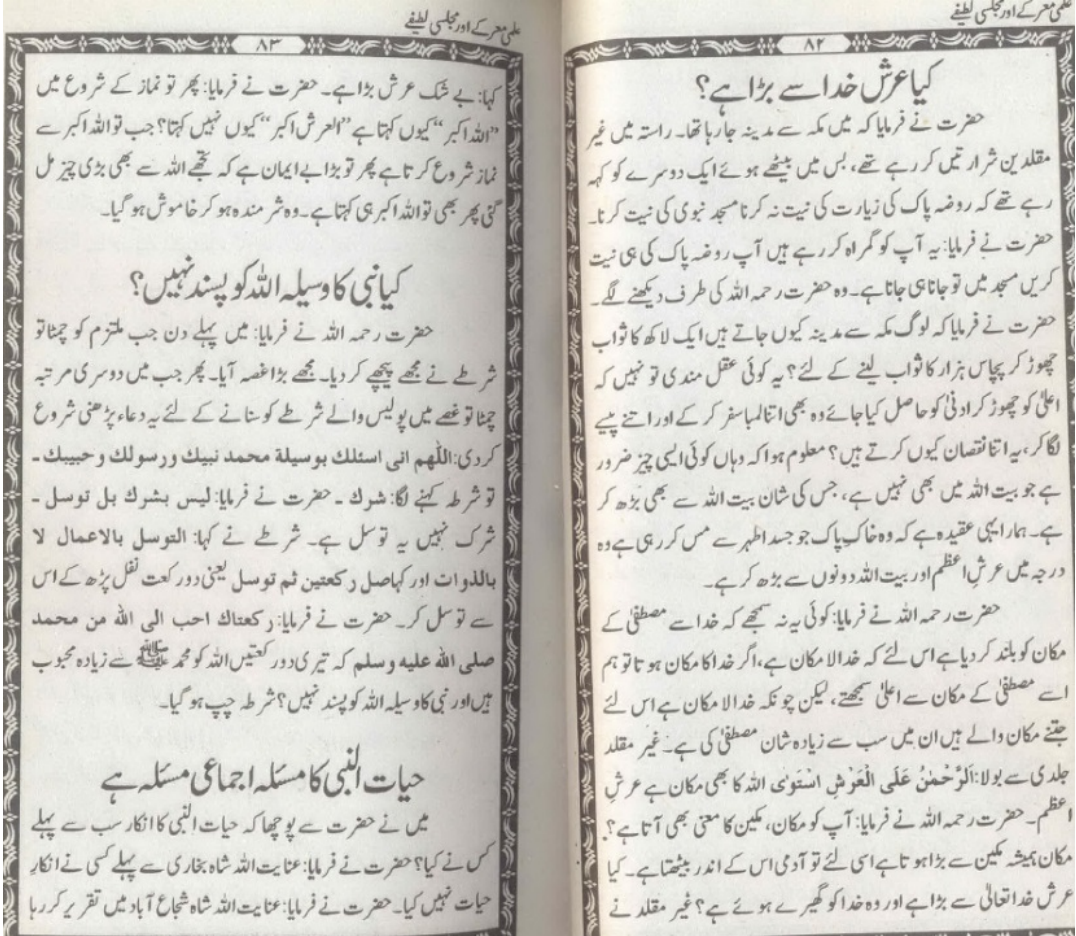 علمی معرکے اور مجلسی لطیفے
۸۲
کیا عرش خدا سے بڑا ہے؟
حضرت نے فرمایا کہ میں مکہ سے مدینہ جا رہا تھا۔ راستہ میں غیر
مقلدین شرارتیں کر رہے تھے، بس میں بیٹھے ہوئے ایک دوسرے کو کہہ
رہے تھے کہ روضہ پاک کی زیارت کی نیت نہ کرنا مسجد نبوی کی نیت کرنا۔
حضرت نے فرمایا: یہ آپ کو گمراہ کر رہے ہیں آپ روضہ پاک کی ہی نیت
کریں مسجد میں تو جانا ہی جانا ہے۔ وہ حضرت رحمہ اللہ کی طرف دیکھنے لگے۔
حضرت نے فرمایا کہ لوگ مکہ سے مدینہ کیوں جاتے ہیں ایک لاکھ کا ثواب
چھوڑ کر پچاس ہزار کا ثواب لینے کے لئے؟ یہ کوئی عقل مندی تو نہیں کہ
اعلیٰ کو چھوڑ کر ادنیٰ کو حاصل کیا جائے وہ بھی اتنا لمبا سفر کر کے اور اتنے پیسے
لگا کر، یہ اتنا نقصان کیوں کرتے ہیں؟ معلوم ہوا کہ وہاں کوئی ایسی چیز ضرور
ہے جو بیت اللہ میں بھی نہیں ہے، جس کی شان بیت اللہ سے بھی بڑھ کر
ہے۔ ہمارا یہی عقیدہ ہے کہ وہ خاکِ پاک جو جسد اطہر سے مس کر رہی ہے وہ
درجہ میں عرشِ اعظم اور بیت اللہ دونوں سے بڑھ کر ہے۔
حضرت رحمہ اللہ نے فرمایا: کوئی یہ نہ سمجھے کہ خدا سے مصطفیٰ کے
مکان کو بلند کر دیا ہے اس لئے کہ خدا لا مکان ہے، اگر خدا کا مکان ہوتا تو ہم
اسے مصطفیٰ کے مکان سے اعلیٰ سمجھتے، لیکن چونکہ خدا لا مکان ہے اس لئے
جتنے مکان والے ہیں ان میں سب سے زیادہ شان مصطفیٰ کی ہے۔ غیر مقلد
جلدی سے بولا: اَلرَّحْمٰنُ عَلَی الْعَرْشِ اسْتَوٰی اللہ کا بھی مکان ہے عرشِ
اعظم۔ حضرت رحمہ اللہ نے فرمایا: آپ کو مکان، مکین کا معنی بھی آتا ہے؟
مکان ہمیشہ مکین سے بڑا ہوتا ہے اسی لئے تو آدمی اس کے اندر بیٹھتا ہے۔ کیا
عرش خدا تعالیٰ سے بڑا ہے اور وہ خدا کو گھیرے ہوئے ہے؟ غیر مقلد نے
علمی معرکے اور مجلسی لطیفے
۸۳
کہا: بے شک عرش بڑا ہے۔ حضرت نے فرمایا: پھر تو نماز کے شروع میں
”اللہ اکبر“ کیوں کہتا ہے ”العرش اکبر“ کیوں نہیں کہتا؟ جب تو اللہ اکبر سے
نماز شروع کرتا ہے پھر تو بڑا بے ایمان ہے کہ تجھے اللہ سے بھی بڑی چیز مل
گئی پھر بھی تو اللہ اکبر ہی کہتا ہے۔ وہ شرمندہ ہو کر خاموش ہو گیا۔
کیا نبی کا وسیلہ اللہ کو پسند نہیں؟
حضرت رحمہ اللہ نے فرمایا: میں پہلے دن جب ملتزم کو چمٹا تو
شرطے نے مجھے پیچھے کر دیا۔ مجھے بڑا غصہ آیا۔ پھر جب میں دوسری مرتبہ
چمٹا تو غصے میں پولیس والے شرطے کو سنانے کے لئے یہ دعاء پڑھنی شروع
کر دی: اللّٰهم انی اسئلك بوسيلة محمد نبيك ورسولك وحبيبك ۔
تو شرطہ کہنے لگا: شرك ۔ حضرت نے فرمایا: ليس بشرك بل توسل ۔
شرک نہیں یہ توسل ہے۔ شرطے نے کہا: التوسل بالاعمال لا
بالذوات اور کہا صل ركعتين ثم توسل یعنی دو رکعت نفل پڑھ کے اس
سے توسل کر۔ حضرت نے فرمایا: ركعتاك احب الى الله من محمد
صلى الله عليه وسلم کہ تیری دو رکعتیں اللہ کو محمد ﷺ سے زیادہ محبوب
ہیں اور نبی کا وسیلہ اللہ کو پسند نہیں؟ شرطہ چپ ہو گیا۔
حیات النبی کا مسئلہ اجماعی مسئلہ ہے
میں نے حضرت سے پوچھا کہ حیات النبی کا انکار سب سے پہلے
کس نے کیا؟ حضرت نے فرمایا: عنایت اللہ شاہ بخاری سے پہلے کسی نے انکارِ
حیات نہیں کیا۔ حضرت نے فرمایا: عنایت اللہ شاہ شجاع آباد میں تقریر کر رہا